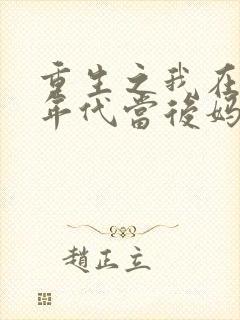 重生之我在
年代當後媽
趙正立